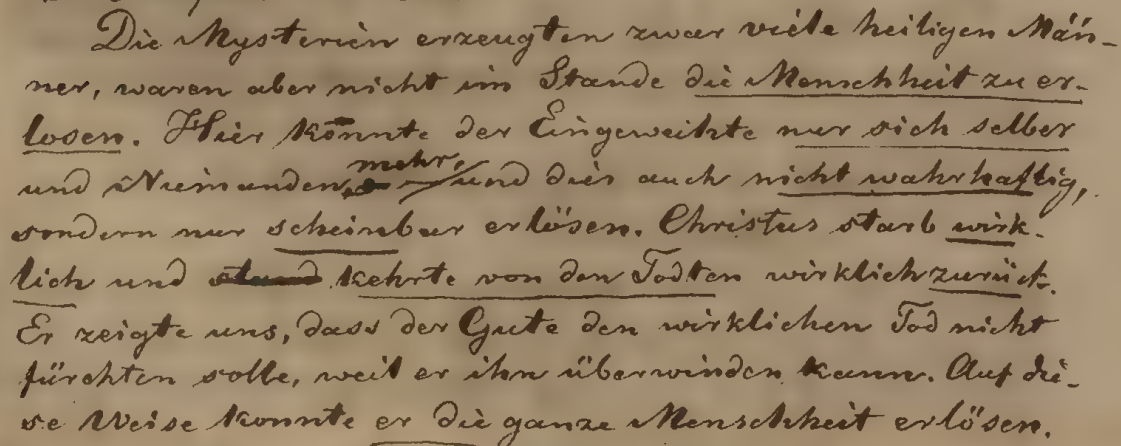 Die Mysterien erzeugten zwar viele heiligen Män-
ner, waren aber nicht im Stande die Menschheit zu er-
lösen. Hier konnte der Eingeweihte nur sich selber
und Niemanden mehr, und dies auch nicht wahrhaftig,
sondern nur scheinbar erlösen. Christus starb wirk-
lich und stand kehrte von den Todten wirklich zurück.
Er zeigte uns, dass der Gute den wirklichen Tod nicht
fürchten solle, weil er ihn überwinden kann. Auf die-
se Weise konnte er die ganze Menschheit erlösen.